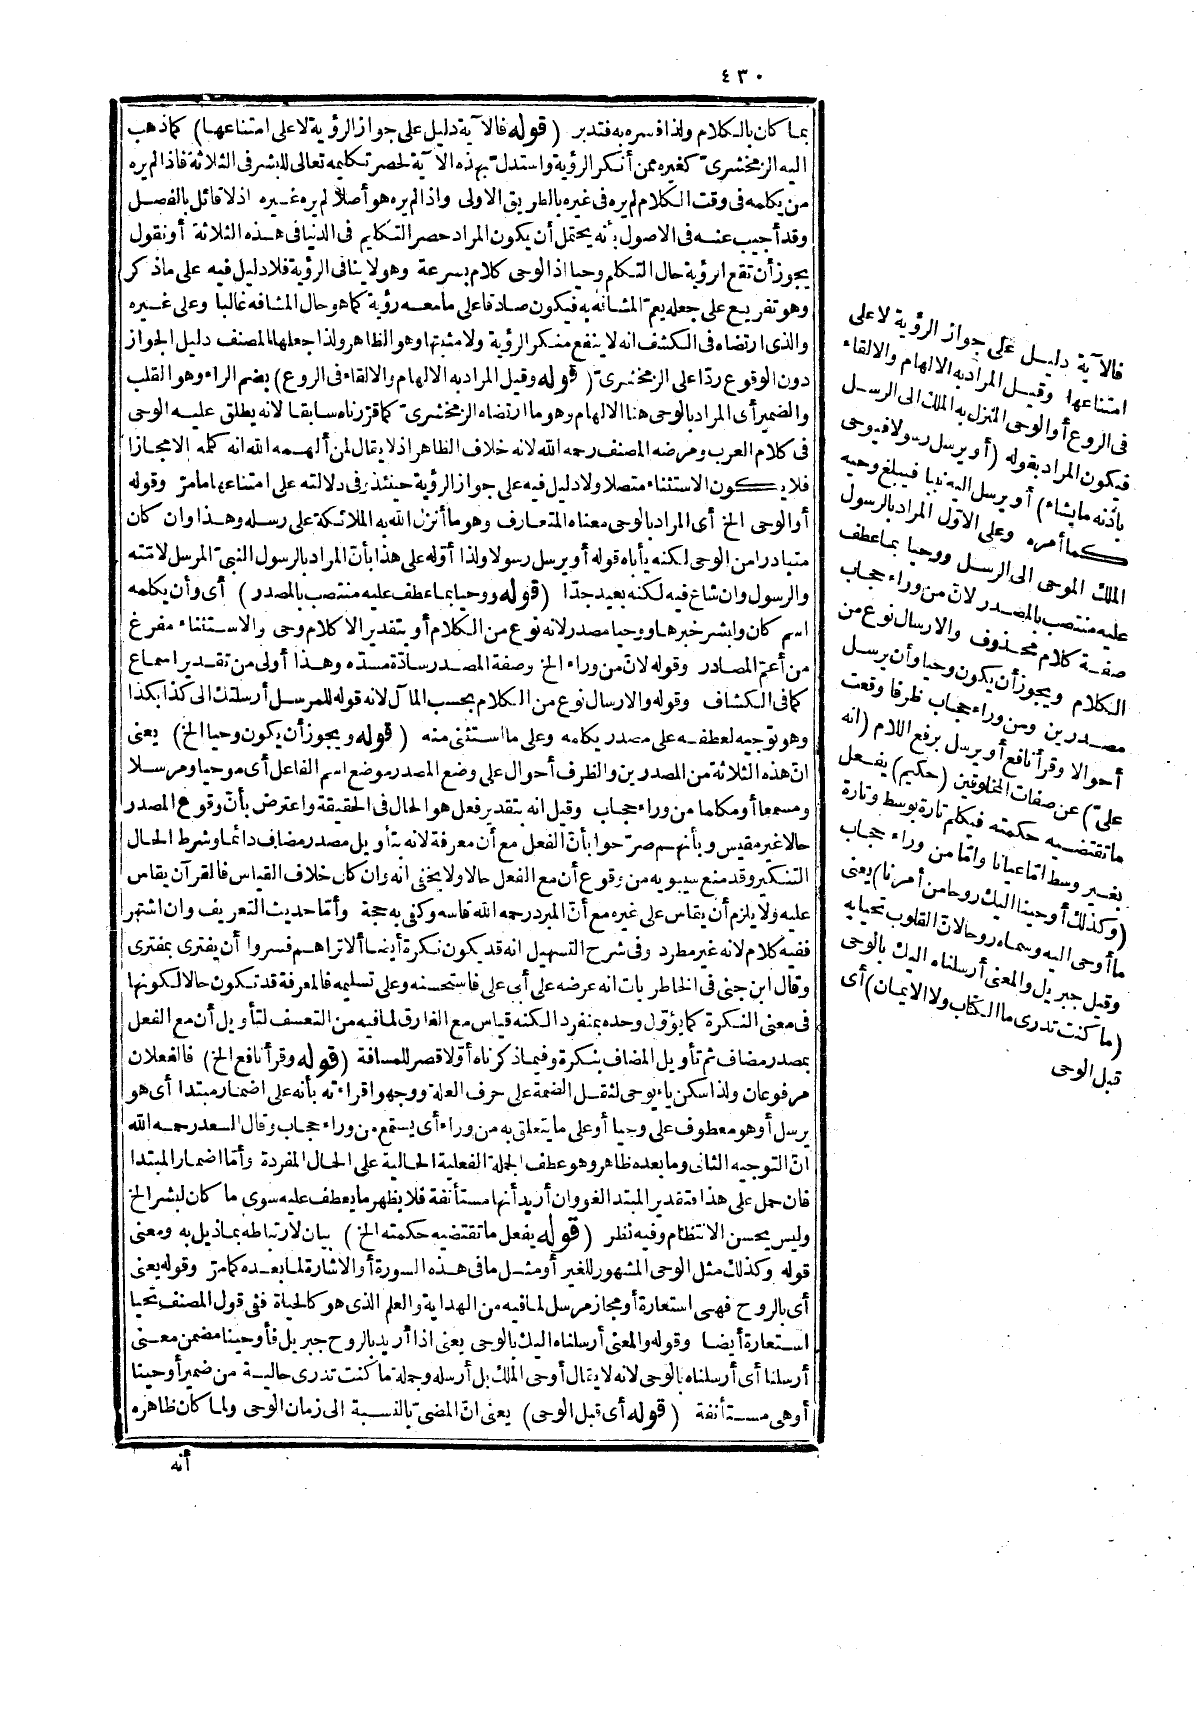 ٤٣٠
بما كان بالكلام ولذا فسره به فتدبر (قوله فالآية دليل على جواز الرؤية لا على امتناعها) كما ذهب
اليه الزمخشرىّ كغيره ممن أنكر الرؤية واستدلّ بهذه الآية لحصر تكليمه تعالى للبشر فى الثلاثة فاذا لم يره
من يكلمه فى وقت الكلام لم يره فى غيره بالطريق الاولى واذ لم يره هو أصلا لم يره غيره اذ لا قائل بالفصل
وقد أجيب عنه فى الاصول بأنه يحتمل أن يكون المراد حصر التكليم فى الدنيا فى هذه الثلاثة أو نقول
يجوز أن تقع الرؤية حال التكلم وحيا اذ الوحى كلام بسرعة وهو لا ينافى الرؤية فلا دليل فيه على ما ذكر
وهو تفريع على جعله يعمّ المشافه به فيكون صادقا على ما معه رؤية كما هو حال المشافه غالبا وعلى غيره
والذى ارتضاه فى الكشف انه لا ينفع منكر الرؤية ولا مثبتها وهو الظاهر ولذا جعلها المصنف دليل الجواز
دون الوقوع ردّا على الزمخشرىّ (قوله وقيل المراد به الالهام والالقاء فى الروع) بضم الراء وهو القلب
والضمير أى المراد بالوحى هنا الالهام وهو ما ارتضاه الزمخشرىّ كما قرّرناه سابقا لانه يطلق عليه الوحى
فى كلام العرب ومرضه المصنف رحمه الله لانه خلاف الظاهر اذ لا يقال لمن ألهمه الله انه كلمه الا مجازا
فلا يكون الاستثناء متصلا ولا دليل فيه على جواز الرؤية حينئذ بل فى دلالته على امتناعها ما مرّ وقوله
أو الوحى الخ أى المراد بالوحى معناه المتعارف وهو ما أنزل الله به الملائكة على رسله وهذا وان كان
متبادرا من الوحى لكنه يأباه قوله أو يرسل رسولا ولذا أوّله على هذا بأنّ المراد بالرسول النبىّ المرسل لامّته
والرسول وان شاع فيه لكنه بعيد جدّا (قوله ووحيا بما عطف عليه منتصب بالمصدر) أى وأن يكلمه
اسم كان ولبشر خبرها ووحيا مصدر لانه نوع من الكلام أو بتقدير الا كلام وحى والاستثناء مفرغ
من أعمّ المصادر وقوله لانّ من وراء الخ وصفة المصدر سادّة مسدّه وهذا أولى من تقدير اسماع
كما فى الكشاف وقوله والارسال نوع من الكلام بحسب المآل لانه قوله للمرسل أرسلتك الى كذا بكذا
وهو توجيه لعطفه على مصدر يكلمه وعلى ما استثنى منه (قوله ويجوز أن يكون وحيا الخ) يعنى
انّ هذه الثلاثة من المصدرين والظرف أحوال على وضع المصدر موضع اسم الفاعل أى موحيا ومرسلا
ومسمعا أو مكلما من وراء حجاب وقيل انه بتقدير فعل هو الحال فى الحقيقة واعترض بأنّ وقوع المصدر
حالا غير مقيس وبأنهم صرّحوا بأنّ الفعل مع أن معرفة لانه بتأويل مصدر مضاف دائما وشرط الحال
التنكير وقد منع سيبويه من وقوع أن مع الفعل حالا ولا يخفى انه وان كان خلاف القياس فالقرآن يقاس
عليه ولا يلزم أن يقاس على غيره مع أنّ المبرد رحمه الله قاسه وكفى به حجة وأمّا حديث التعريف وان اشتهر
ففيه كلام لانه غير مطرد وفى شرح التسهيل انه قد يكون نكرة أيضا ألا تراهم فسروا أن يفترى بمفترى
وقال ابن جنى فى الخاطريات انه عرضه على أبى على فاستحسنه وعلى تسليمه فالمعرفة قد تكون حالا لكونها
فى معنى النكرة كما يؤوّل وحده بمنفرد لكنه قياس مع الفارق لما فيه من التعسف لتأويل أن مع الفعل
بمصدر مضاف ثم تأويل المضاف بنكرة وفيما ذكرناه أوّلا قصر للمسافة (قوله وقرأ نافع الخ) فالفعلان
مرفوعان ولذا سكن ياء يوحى لثقل الضمة على حرف العلة ووجهوا قراءته بأنه على اضمار مبتدا أى هو
يرسل أو هو معطوف على وحيا أو على ما يتعلق به من وراء أى يستمع من وراء حجاب وقال السعد رحمه الله
انّ التوجيه الثانى وما بعده ظاهر وهو عطف الجملة الفعلية الحالية على الحال المفردة وأمّا اضمار المبتدا
فان حمل على هذا فتقدير المبتدا لغو وان أريد أنها مستأنفة فلا يظهر ما يعطف عليه سوى ما كان لبشر الخ
وليس بحسن الانتظام وفيه نظر (قوله يفعل ما تقتضيه حكمته الخ) بيان لارتباطه بما ذيل به ومعنى
قوله وكذلك مثل الوحى المشهور للغير أو مثل ما فى هذه السورة أو الاشارة لما بعده كما مرّ وقوله يعنى
أى بالروح فهى استعارة أو مجاز مرسل لما فيه من الهداية والعلم الذى هو كالحياة ففى قول المصنف تحيا
استعارة أيضا وقوله والمعنى أرسلناه اليك بالوحى يعنى اذا أريد بالروح جبريل فأوحينا مضمن معنى
أرسلنا أى أرسلناه بالوحى لانه لا يقال أوحى الملك بل أرسله وجملة ما كنت تدرى حالية من ضمير أوحينا
أو هى مستأنفة (قوله أى قبل الوحى) يعنى انّ المضىّ بالنسبة الى زمان الوحى ولما كان ظاهره
أنه
فالآية دليل على جواز الرؤية لا على
امتناعها وقيل المراد به الالهام والالقاء
فى الروع أو الوحى المنزل به الملك الى الرسل
فيكون المراد بقوله (أو يرسل رسولا فيوحى
باذنه ما يشاء) أو يرسل اليه نبيا فيبلغ وحيه
كما أمره وعلى الاوّل المراد بالرسول
الملك الموحى الى الرسل ووحيا بما عطف
عليه منتصب بالمصدر لانّ من وراء حجاب
صفة كلام محذوف والارسال نوع من
الكلام ويجوز أن يكون وحيا وأن يرسل
مصدرين ومن وراء حجاب ظرفا وقعت
أحوالا وقرأ نافع أو يرسل برفع اللام (انه
علىّ) عن صفات المخلوقين (حكيم) يفعل
ما تقتضيه حكمته فيكلم تارة بوسط وتارة
بغير وسط امّا عيانا وامّا من وراء حجاب
(وكذلك أوحينا اليك روحا من أمرنا) يعنى
ما أوحى اليه وسماه روحا لانّ القلوب تحيا به
وقيل جبريل والمعنى أرسلناه اليك بالوحى
(ما كنت تدرى ما الكتاب ولا الايمان) أى
قبل الوحى